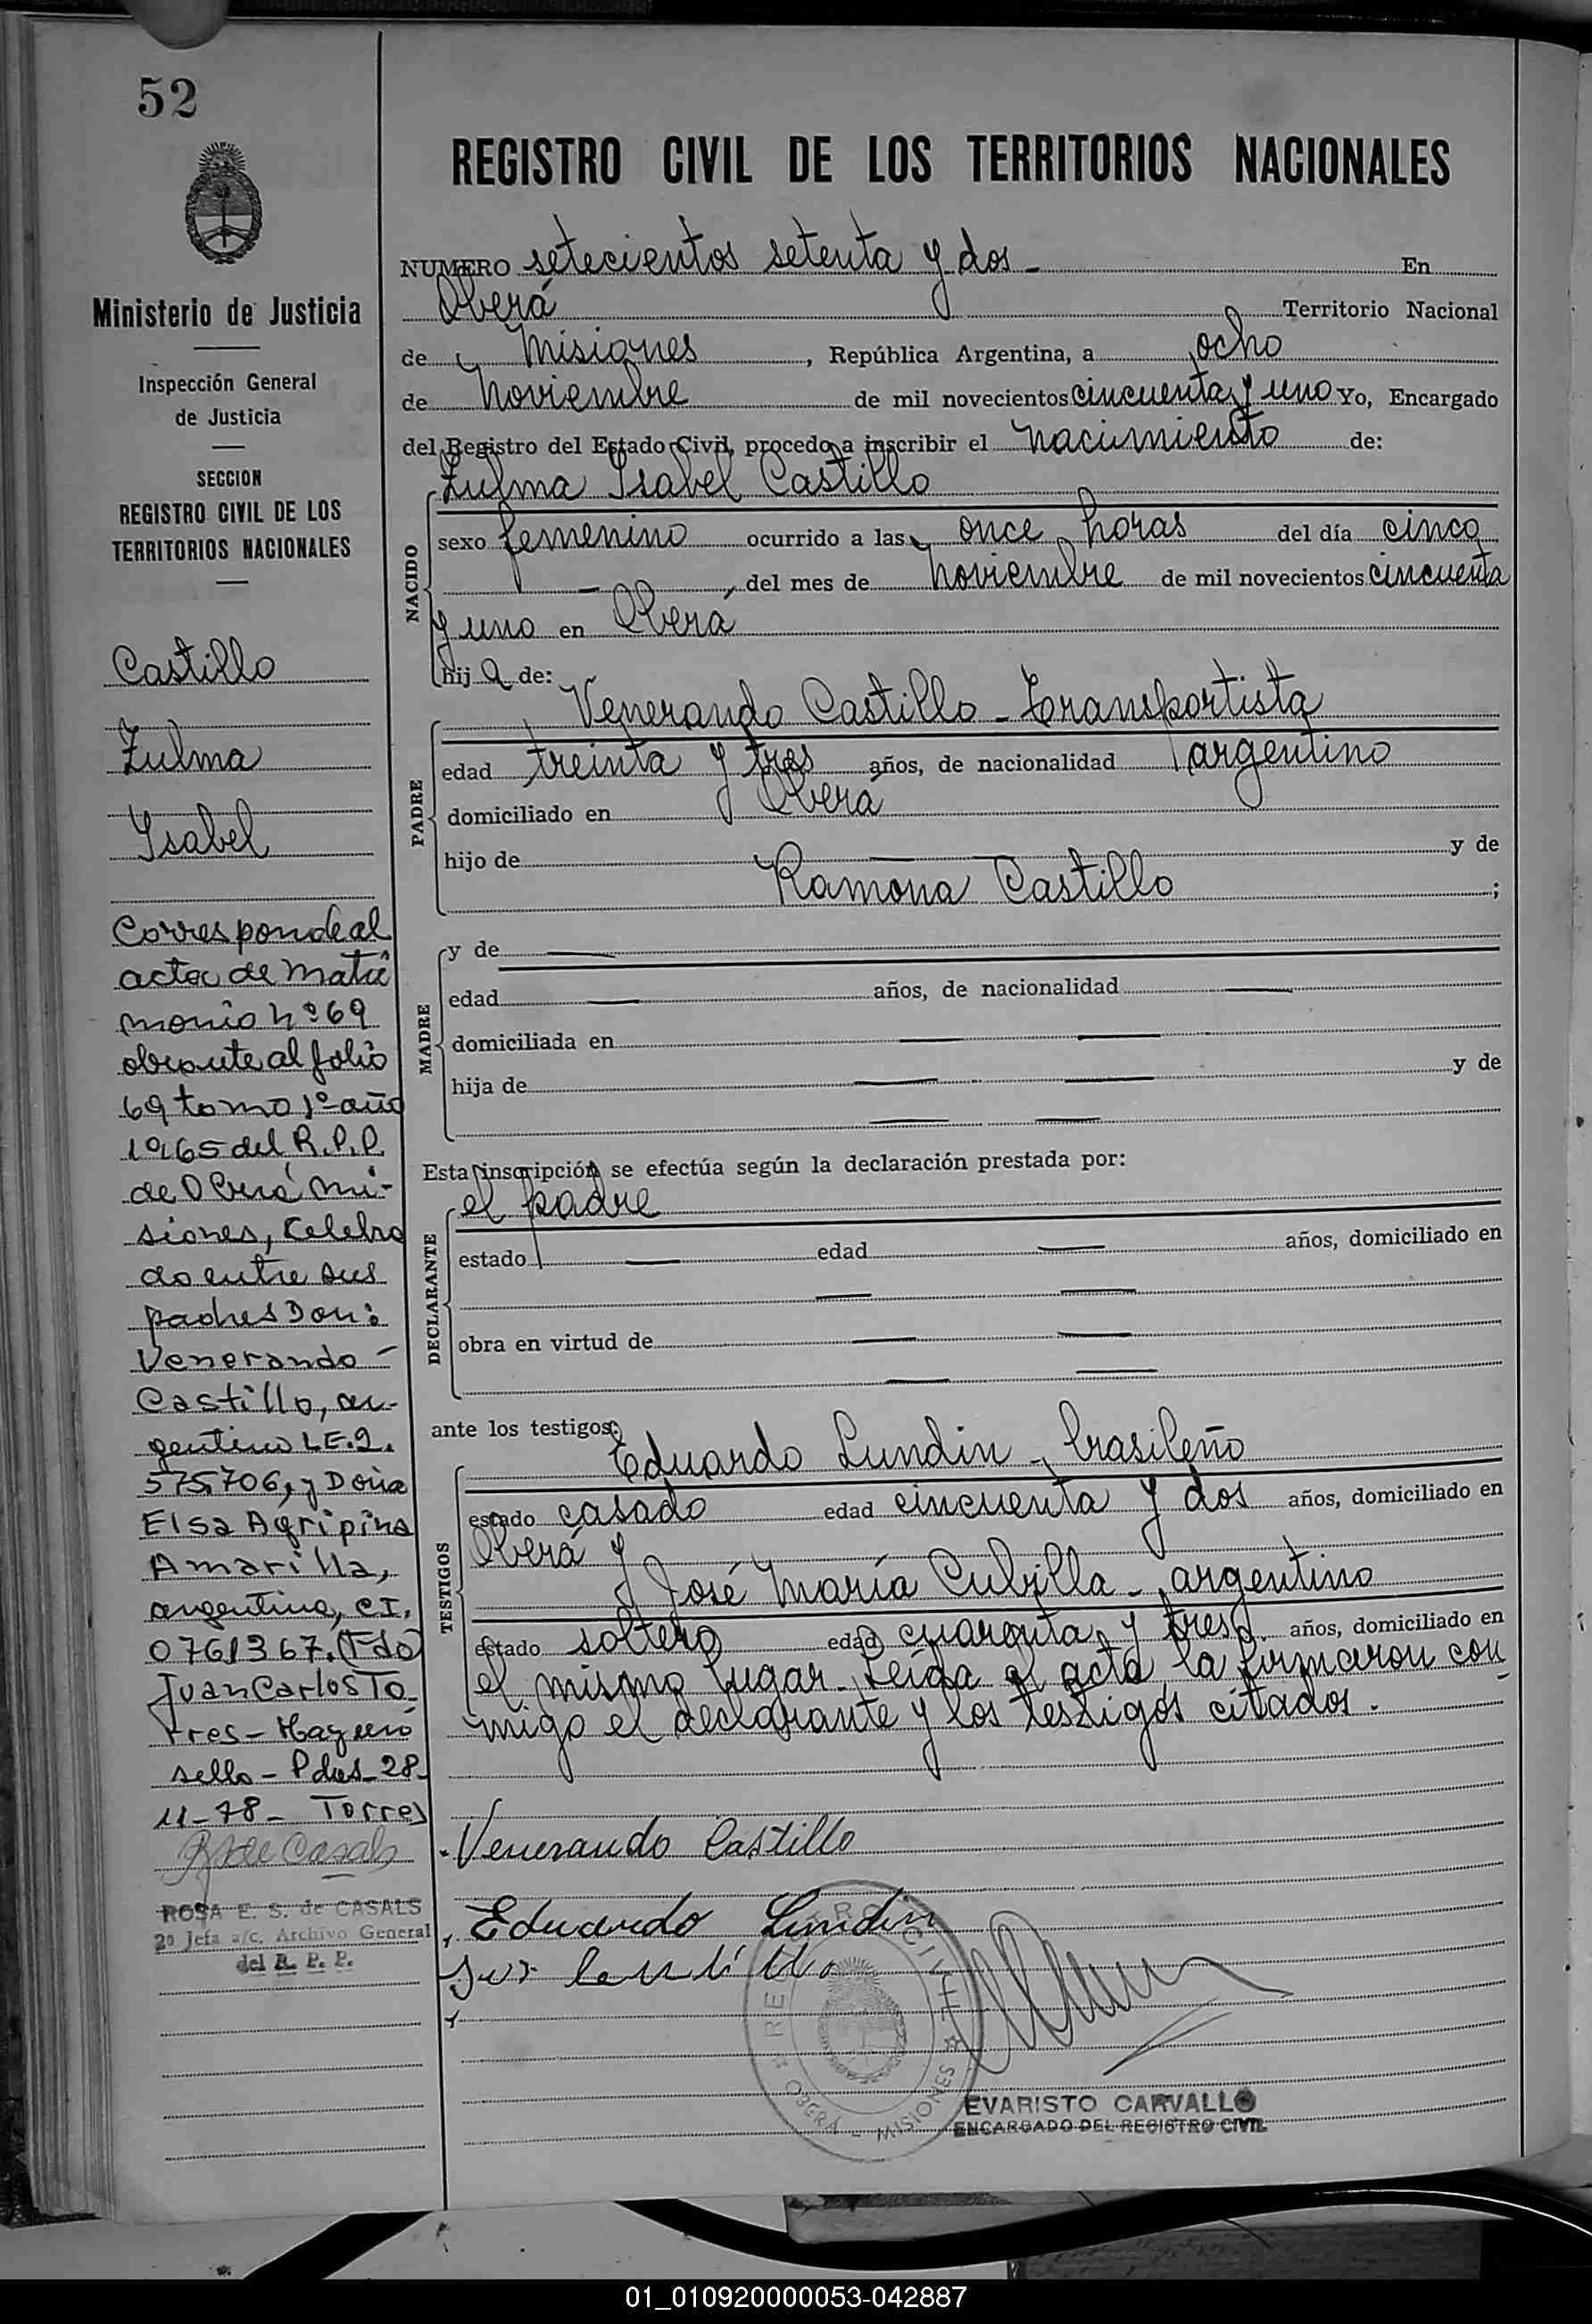 52
Ministerio de Justicia
Inspección General
de Justicia
SECCION
REGISTRO CIVIL DE LOS
TERRITORIOS NACIONALES
Castillo
Zulma
Ysabel
Corresponde al
acta de Matri
monio Nº 69
obrante al folio
69 tomo 1º año
1965 del R.P.P.
de Oberá Mi-
siones, celebra
do entre sus
padres Don:
Venerando -
Castillo, ar-
gentino L.E. 2.
575.706, y Doña
Elsa Agripina
Amarilla,
argentina, C.I.
0761367. (Fdo)
Juan Carlos To
rres - Hay un
sello - Pdas - 28-
11-78 - Torres
R S de Casals
ROSA E. S. de CASALS
2º Jefa a/c. Archivo General
del R. P. P.
REGISTRO CIVIL DE LOS TERRITORIOS NACIONALES
NUMERO setecientos setenta y dos - En
Oberá Territorio Nacional
de Misiones, República Argentina, a ocho
de Noviembre de mil novecientos cincuenta y uno Yo, Encargado
del Registro del Estado Civil, procedo a inscribir el nacimiento de:
Zulma Ysabel Castillo
NACIDO
sexo femenino ocurrido a las once horas del día cinco
- del mes de Noviembre de mil novecientos cincuenta
y uno en Oberá
hija de:
Venerando Castillo - transportista
PADRE
edad treinta y tres años, de nacionalidad argentino
domiciliado en Oberá
hijo de — — y de
Ramona Castillo ;
MADRE
y de —
edad — años, de nacionalidad —
domiciliada en — —
hija de — — y de
— —
Esta inscripción se efectúa según la declaración prestada por:
el padre
DECLARANTE
estado — edad — años, domiciliado en
— —
obra en virtud de — —
— —
ante los testigos:
Eduardo Lundin - brasileño
TESTIGOS
estado casado edad cincuenta y dos años, domiciliado en
Oberá y
José María Cubilla - argentino
estado soltero edad cuarenta y tres años, domiciliado en
el mismo lugar. Leída el acta, la firmaron con
migo el declarante y los testigos citados.
Venerando Castillo
Eduardo Lundin
REGISTRO CIVIL
OBERÁ - MISIONES
EVARISTO CARVALLO
ENCARGADO DEL REGISTRO CIVIL
01_010920000053-042887